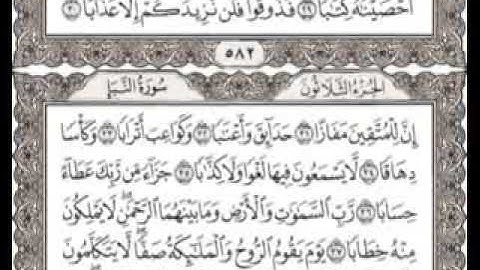 أَحْصَيْنَٰهُ كِتَٰبًا ٢٩ فَذُوقُوا۟ فَلَن نَّزِيدَكُمْ إِلَّا عَذَابًا ٣٠
٥٨٢
الجُزْءُ الثَّلَاثُونَ سُورَةُ النَّبَإِ
إِنَّ لِلْمُتَّقِينَ مَفَازًا ٣١ حَدَآئِقَ وَأَعْنَٰبًا ٣٢ وَكَوَاعِبَ أَتْرَابًا ٣٣ وَكَأْسًا
دِهَاقًا ٣٤ لَّا يَسْمَعُونَ فِيهَا لَغْوًا وَلَا كِذَّٰبًا ٣٥ جَزَآءً مِّن رَّبِّكَ عَطَآءً
حِسَابًا ٣٦ رَّبِّ ٱلسَّمَٰوَٰتِ وَٱلْأَرْضِ وَمَا بَيْنَهُمَا ٱلرَّحْمَٰنِ لَا يَمْلِكُونَ
مِنْهُ خِطَابًا ٣٧ يَوْمَ يَقُومُ ٱلرُّوحُ وَٱلْمَلَٰٓئِكَةُ صَفًّا لَّا يَتَكَلَّمُونَ